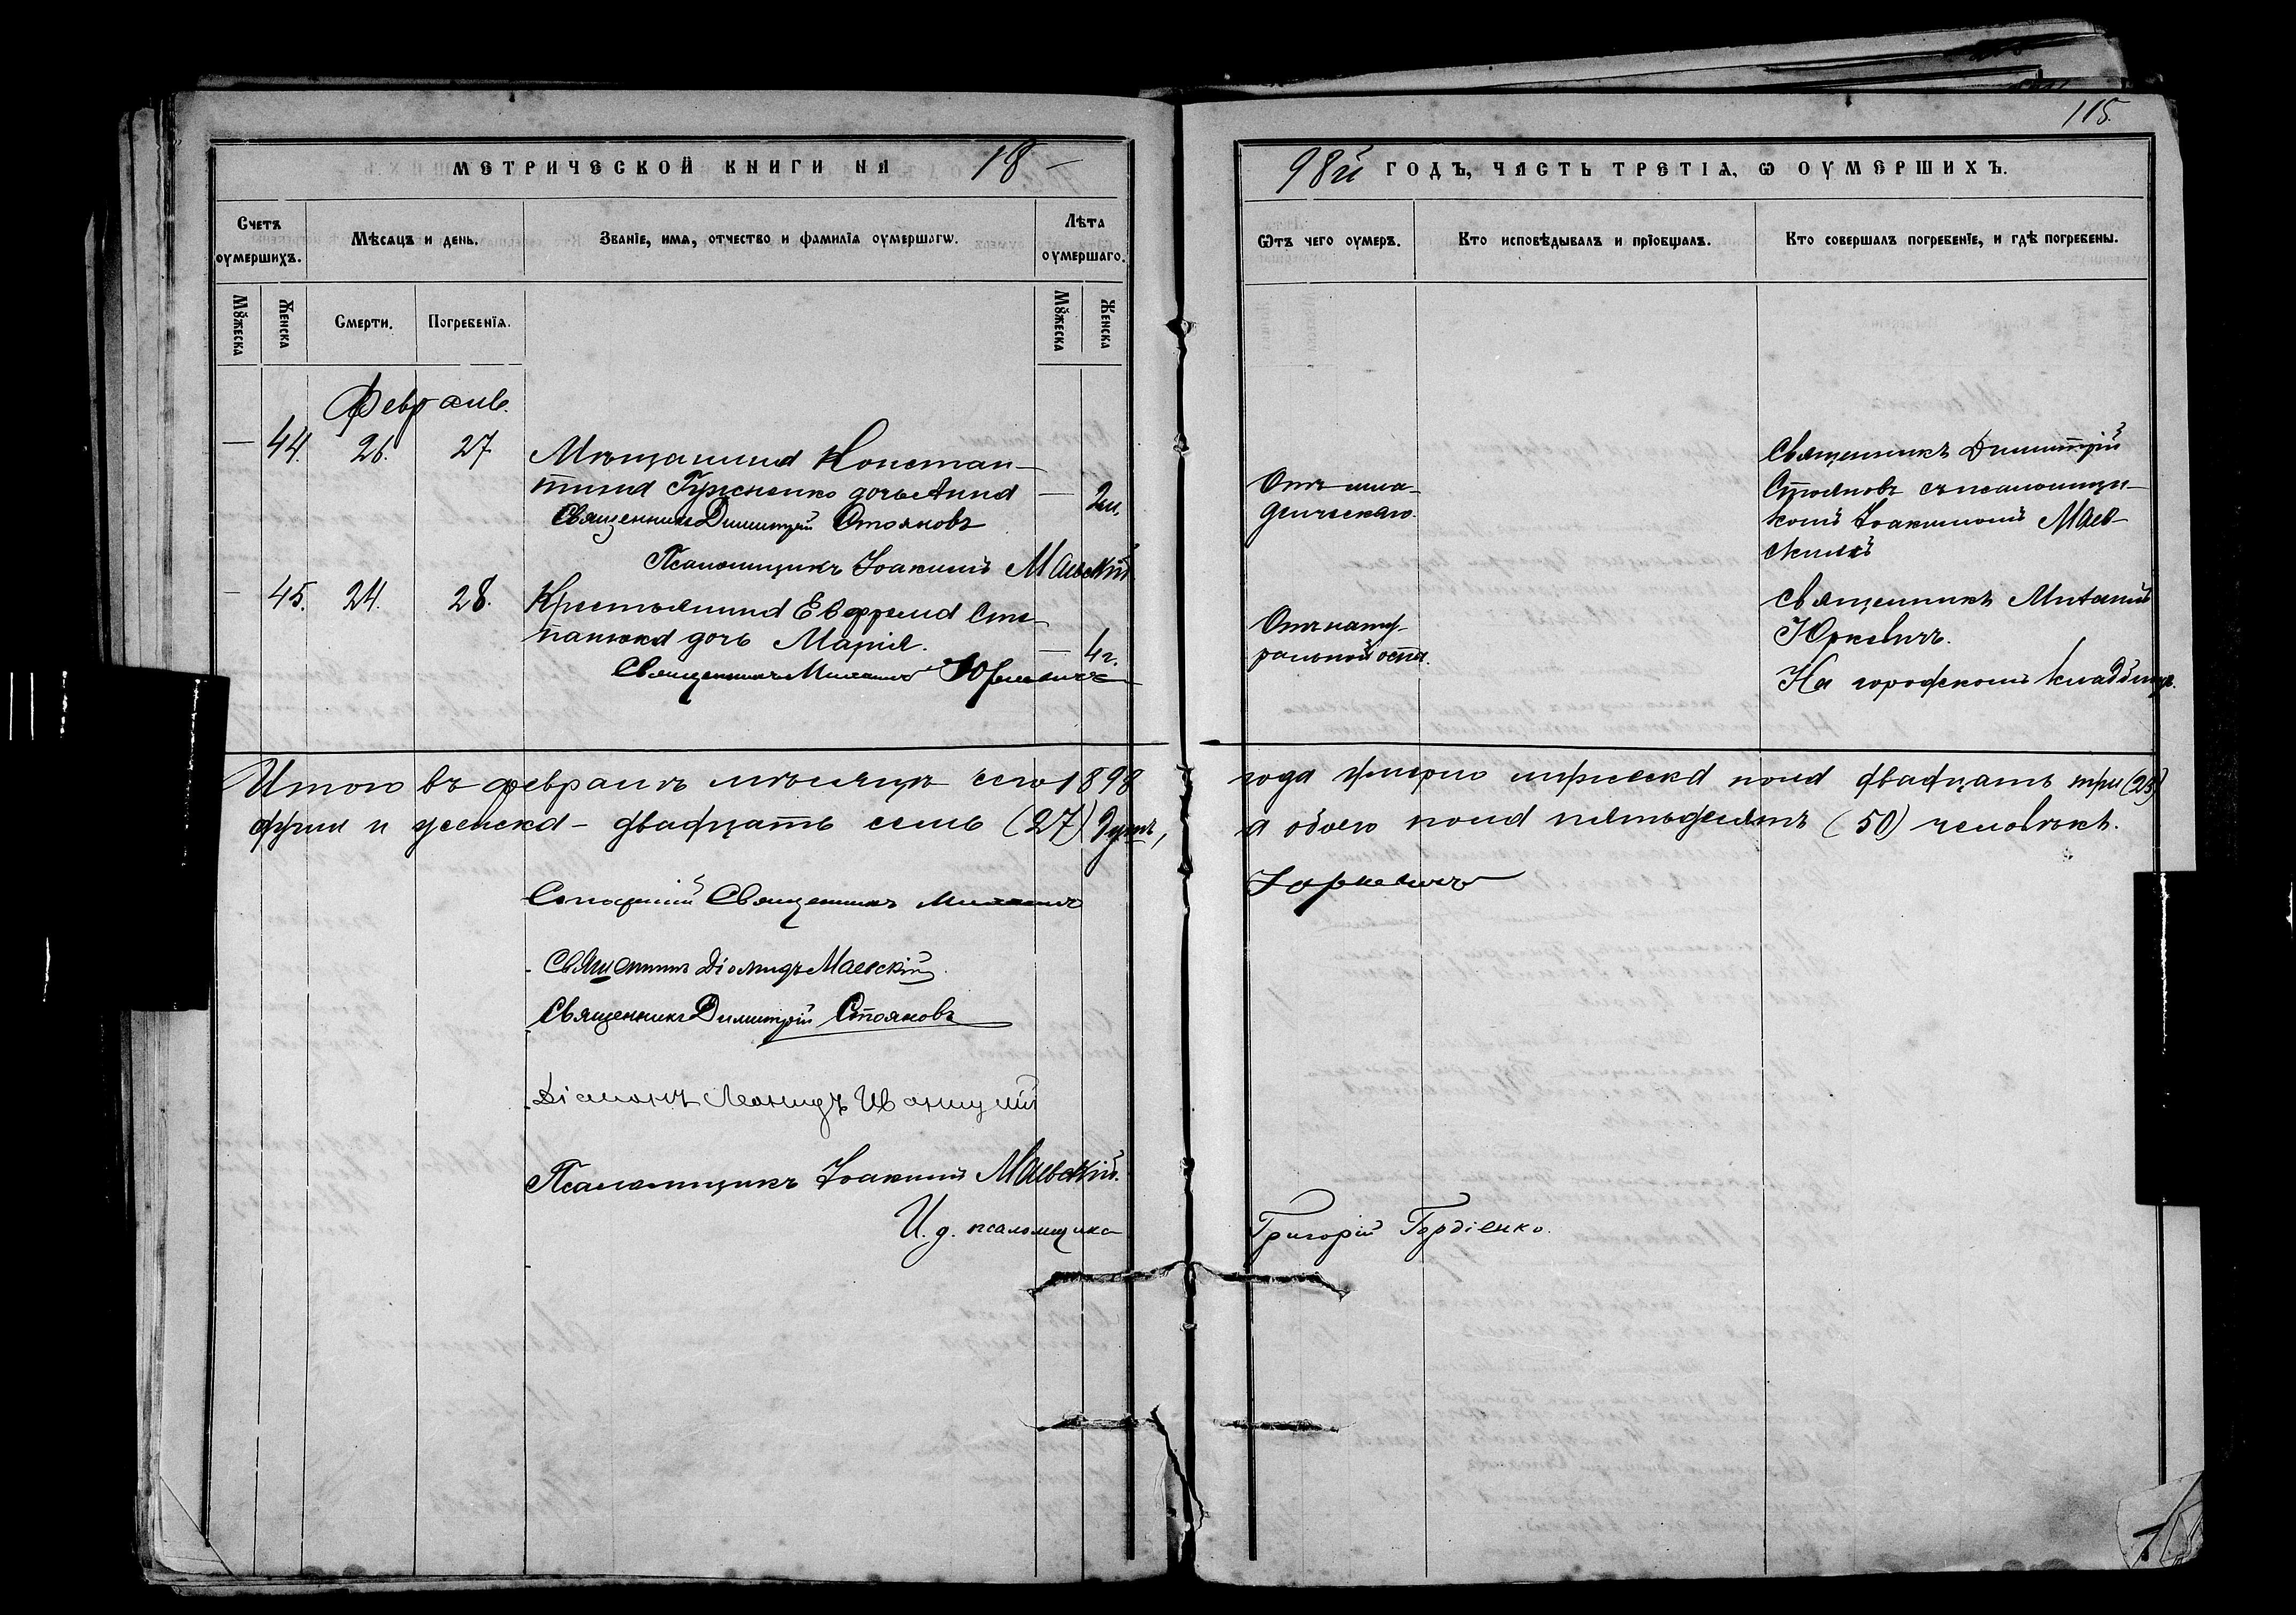 115.
МЕТРИЧЕСКОЙ КНИГИ НА 18 —
98й ГОДЪ, ЧАСТЬ ТРЕТІѦ, Ѡ ОУМЕРШИХЪ.
Счетъ оумершихъ.
Мѣсѧцъ и день.
Званіе, имѧ, отчество и фамиліѧ оумершагѡ.
Лѣта оумершаго.
Ѿтъ чего оумеръ.
Кто исповѣдывалъ и пріобщалъ.
Кто совершалъ погребеніе, и гдѣ погребены.
Мꙋжеска
Женска
Смерти.
Погребеніѧ.
Мꙋжеска
Женска
Февраль.
— 44. 26. 27
Мѣщанина Констан-
тина дочь Анна — 2м.
Священникъ Димитрій Стояновъ
Псаломщикъ Іоакимъ Маевскій
Священникъ Димитрій
Стояновъ съ псаломщи-
комъ Іоакимомъ Маев-
скимъ
— 45. 24. 28.
Крестьянина Евфрема Сте-
панюка дочь Марія. — 4 г.
Священникъ Михаилъ Юркевичъ
Отъ нату-
ральной оспы.
Священникъ Михаилъ
Юркевичъ.
На городскомъ кладбищѣ.
Итого въ февралѣ мѣсяцѣ сего 1898 года умерло мужеска пола двадцать три (23)
души и женска - двадцать семь (27) душъ, а обоего пола пятьдесятъ (50) человѣкъ.
Священникъ Михаилъ Юркевичъ
Священникъ Діомидъ Маевскій
Священникъ Димитрій Стояновъ
Діаконъ Леонидъ
Псаломщикъ Іоакимъ Маевскій.
И. д. псаломщика Григорій Гордіенко.